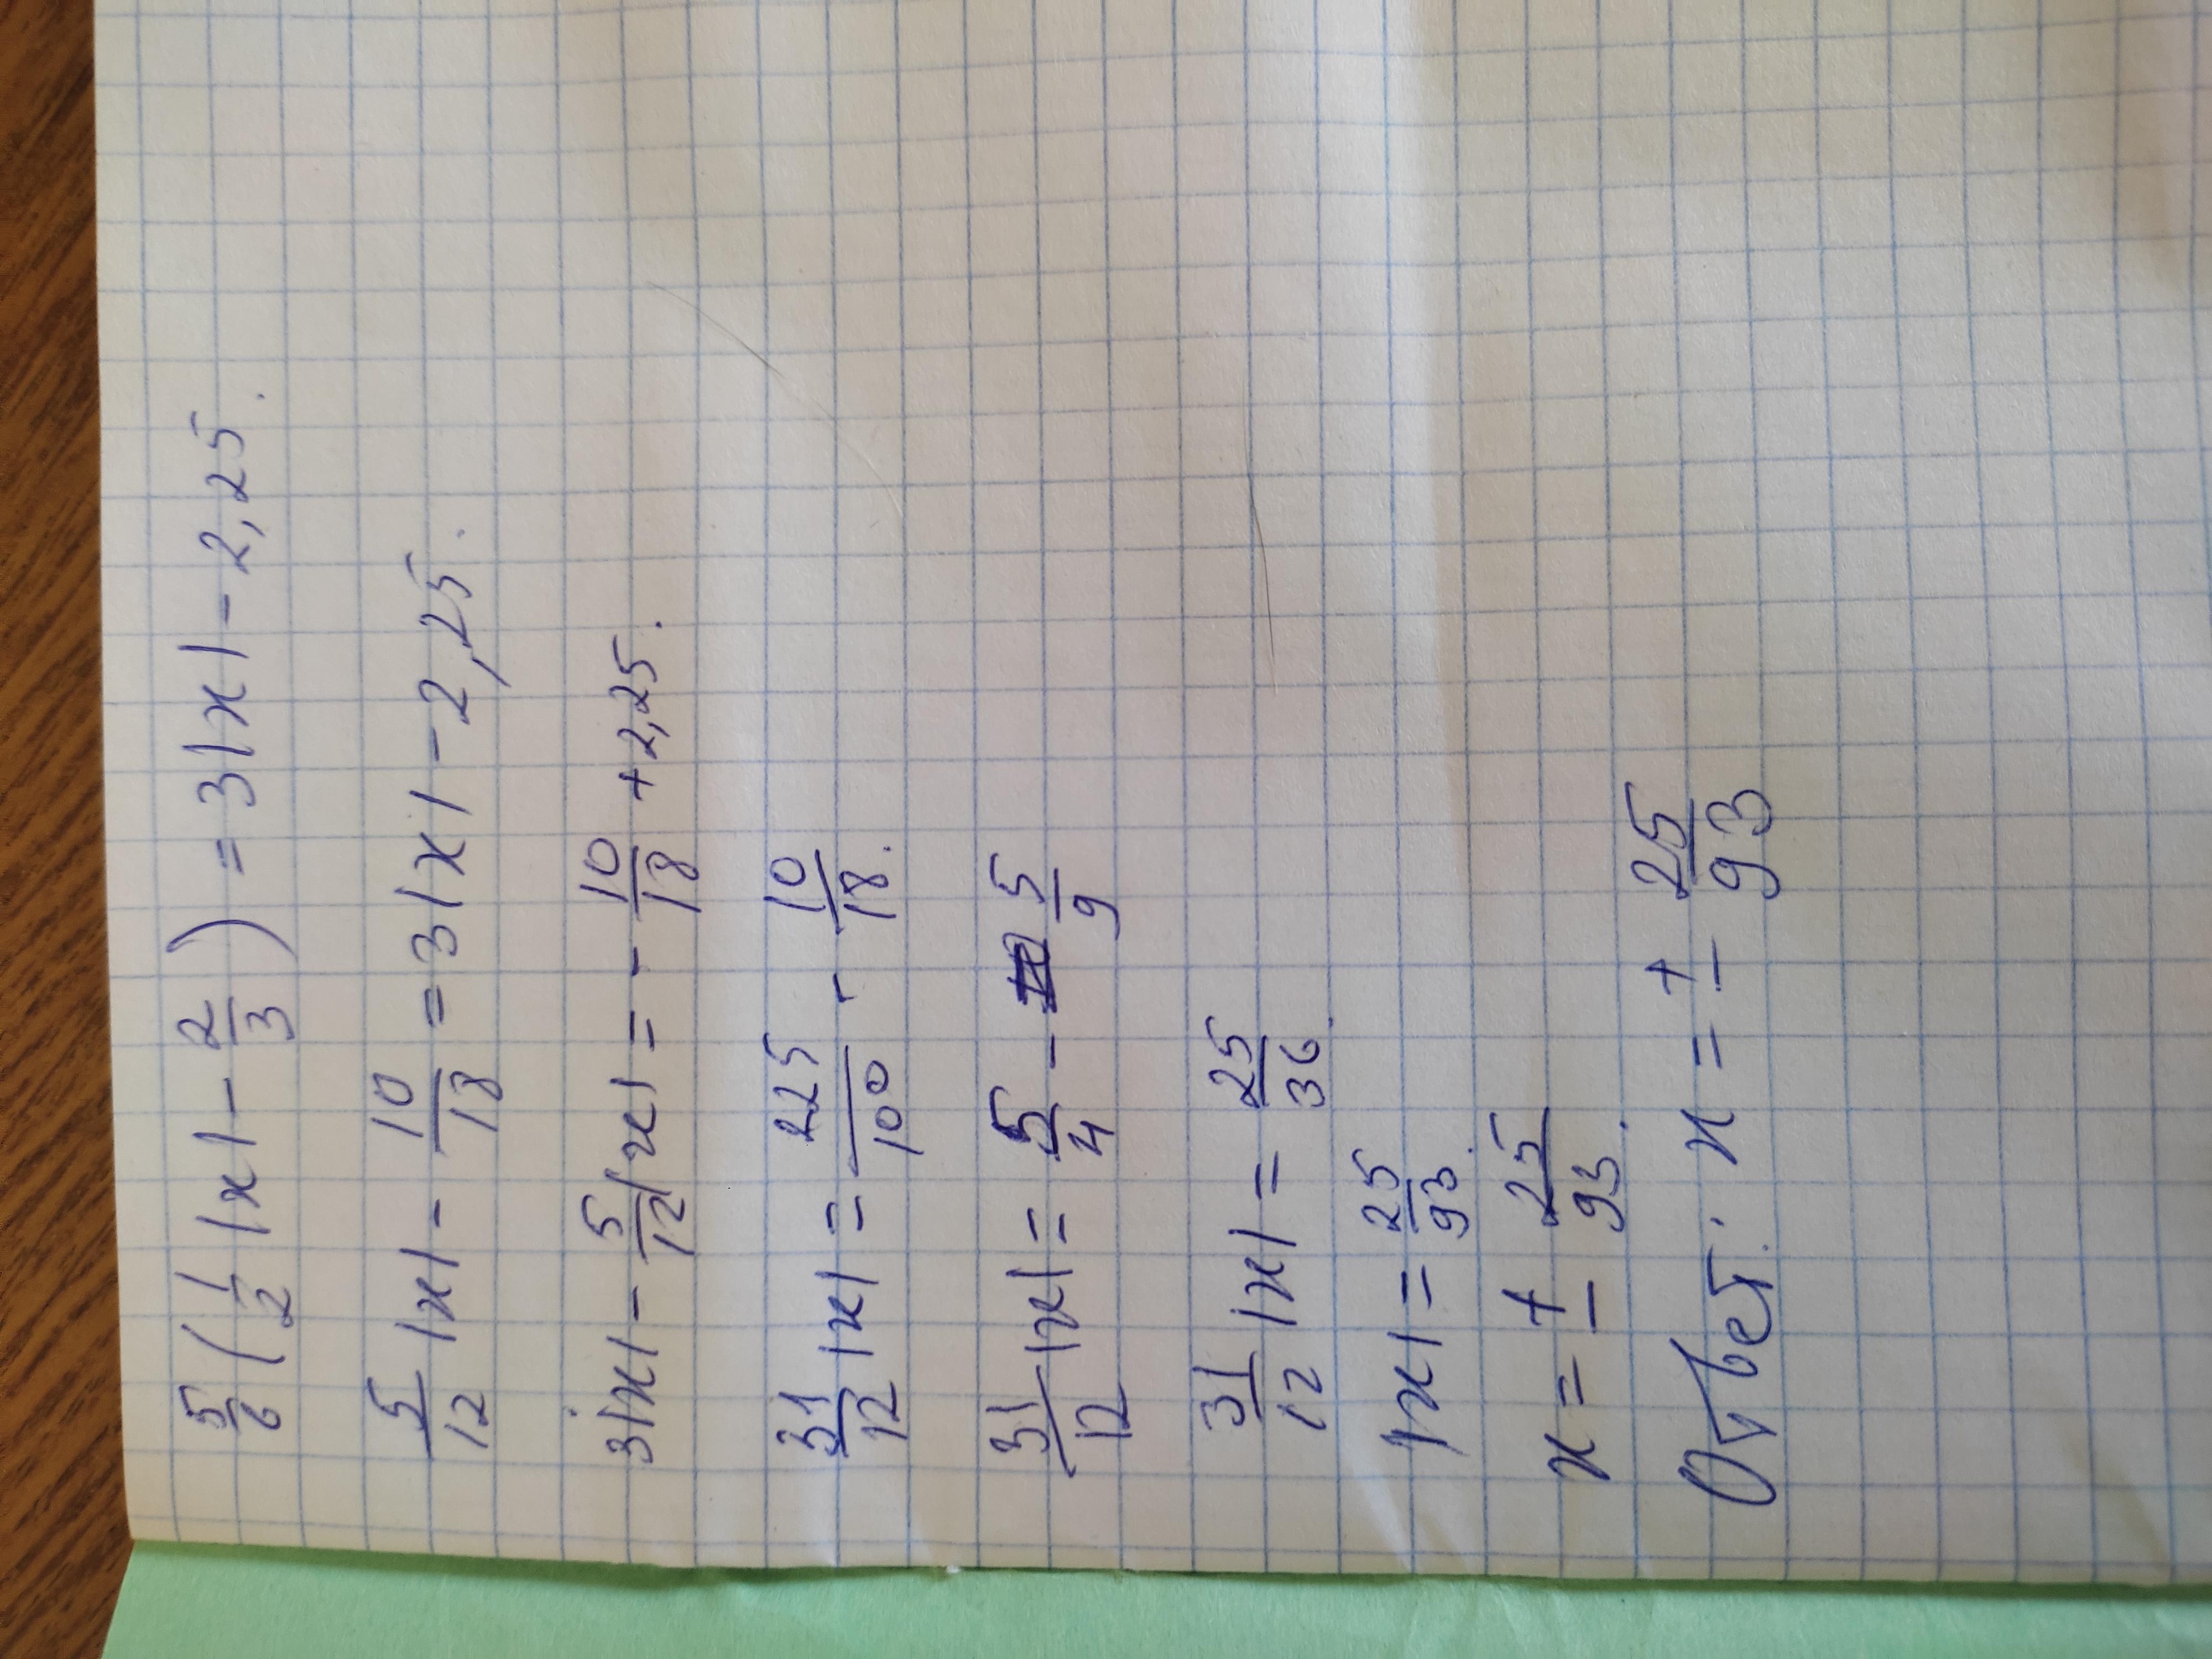 5/6 (1/2 |x| - 2/3) = 3|x| - 2,25.
5/12 |x| - 10/18 = 3|x| - 2,25.
3|x| - 5/12 |x| = - 10/18 + 2,25.
31/12 |x| = 225/100 - 10/18.
31/12 |x| = 5/4 - 5/9
31/12 |x| = 25/36.
|x| = 25/93.
x = ± 25/93.
Ответ: x = ± 25/93